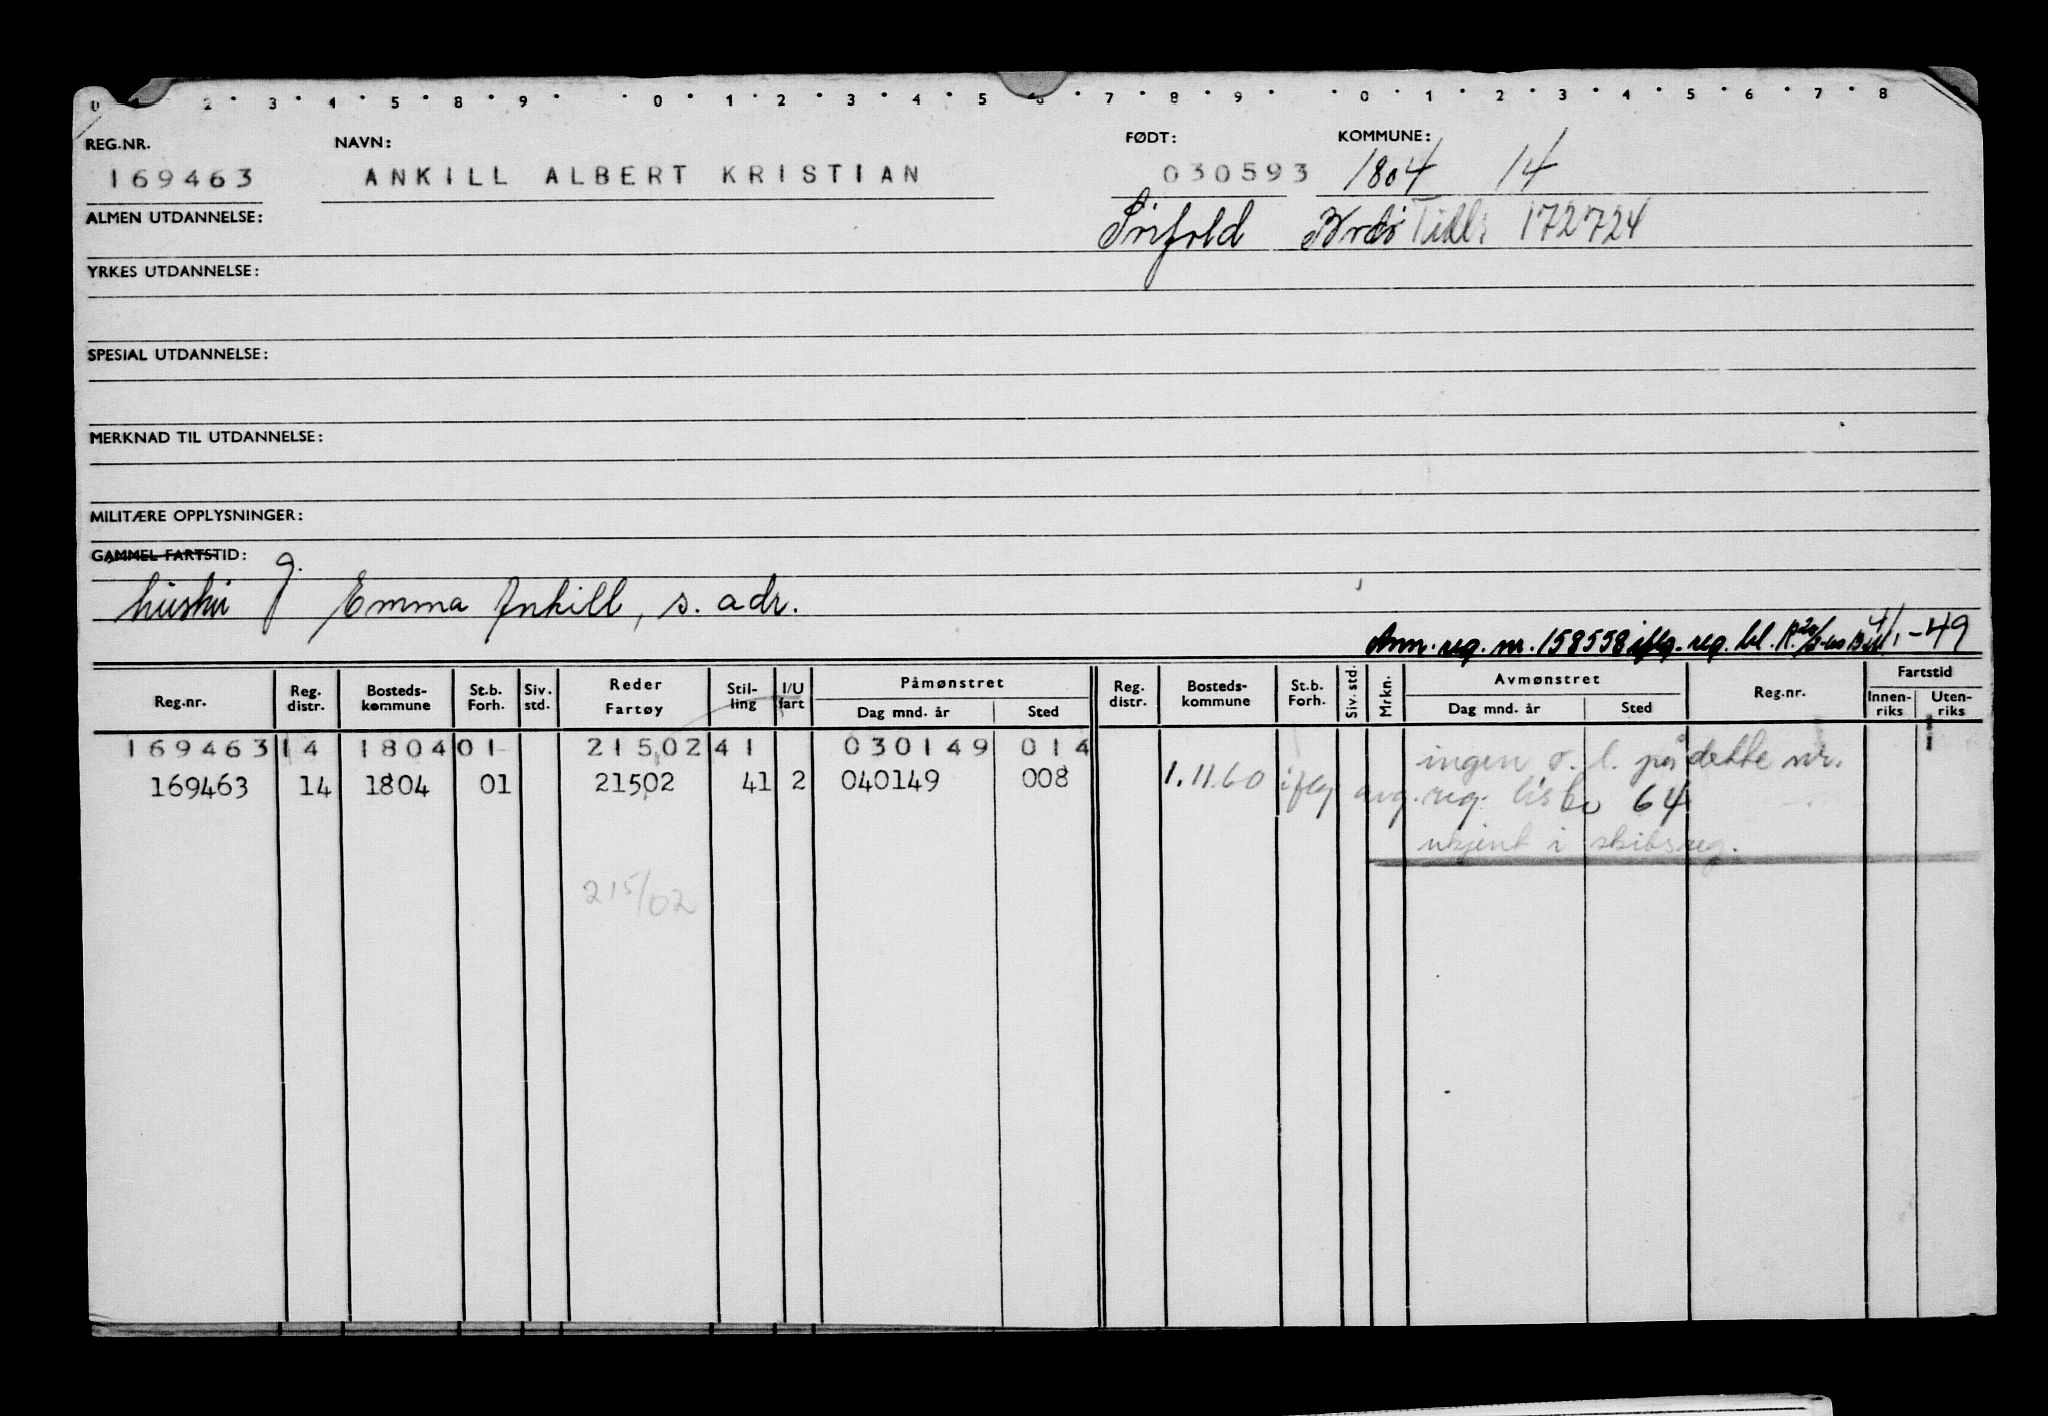 0 1 2 3 4 5 8 9 0 1 2 3 4 5 6 7 8 9 0 1 2 3 4 5 6 7 8
REG.NR. NAVN: FØDT: KOMMUNE:
169463 ANKILL ALBERT KRISTIAN 030593 1804 14
ALMEN UTDANNELSE: 172724
YRKES UTDANNELSE:
SPESIAL UTDANNELSE:
MERKNAD TIL UTDANNELSE:
MILITÆRE OPPLYSNINGER:
GAMMEL FARTSTID: g.
hustru Emma Ankill, s. adr.
Ann. reg. nr. 158558 iflg. reg. bl. 4/1-49
Reg.nr. Reg. distr. Bosteds-kommune St.b. Forh. Siv. std. Reder Fartøy Stil-ling I/U fart Påmønstret Dag mnd. år Sted Reg. distr. Bosteds-kommune St.b. Forh. Siv. std. Mrkn. Avmønstret Dag mnd. år Sted Reg.nr. Fartstid Innen-riks Uten-riks
169463 14 1804 01 21502 41 030149 014 ingen o. l. på dette nr.
169463 14 1804 01 21502 41 2 040149 008 1.11.60 iflg. avg. reg. liste 64
ukjent i skibsreg.
215/02